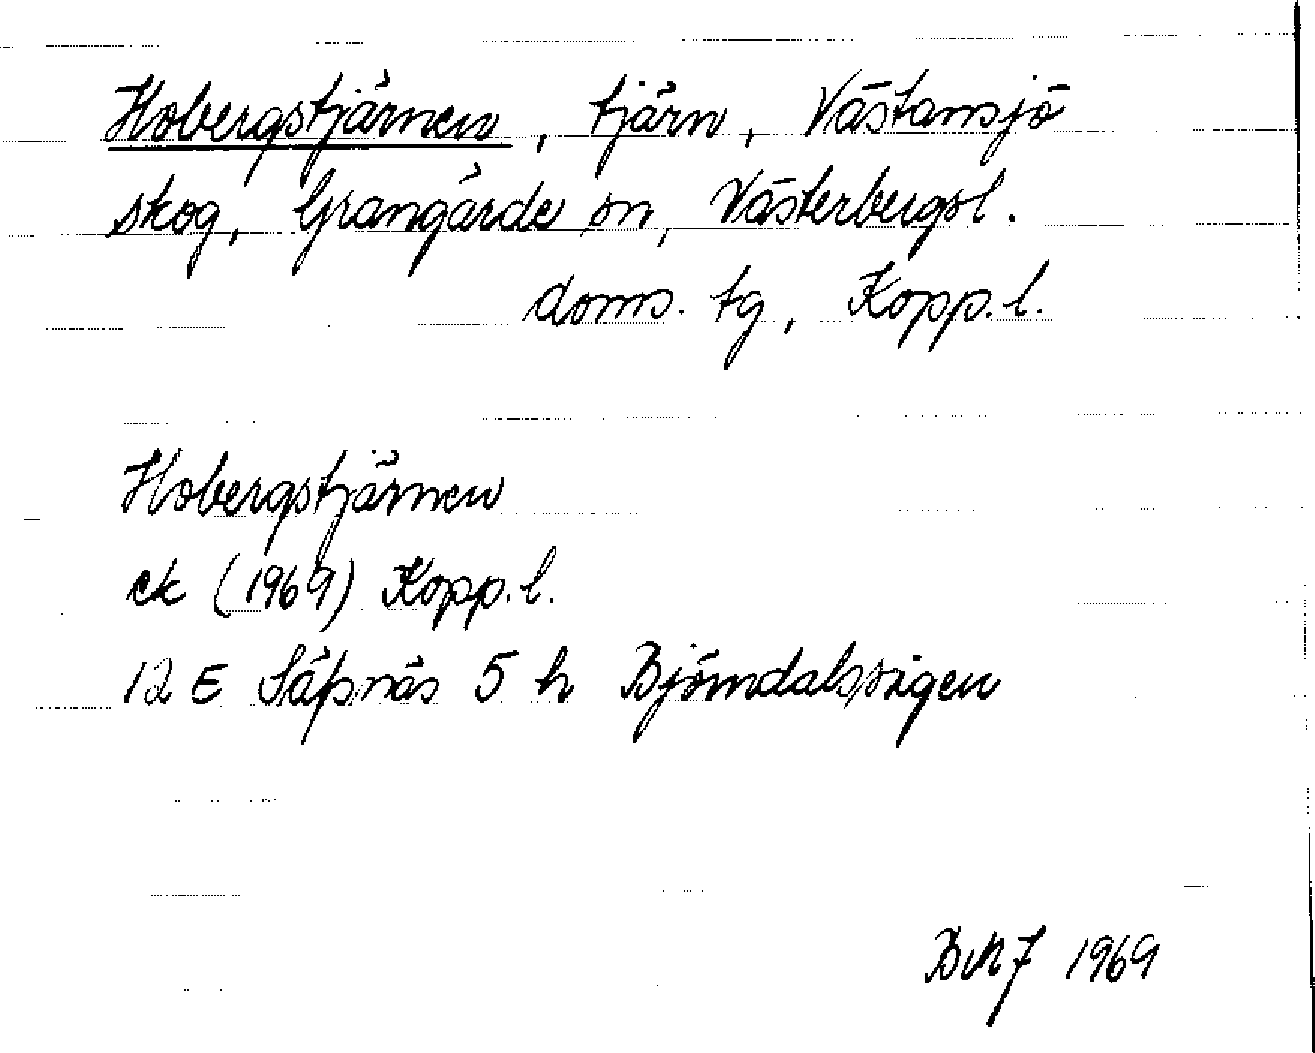 Hobergstjärnen, tjärn, Västansjö
skog, Grangärde sn, Västerbergsl.
doms. tg, Kopp. l.
Hobergstjärnen
ek (1969) Kopp. l.
12 E Säfsnäs 5 h Björndalssigen
1969